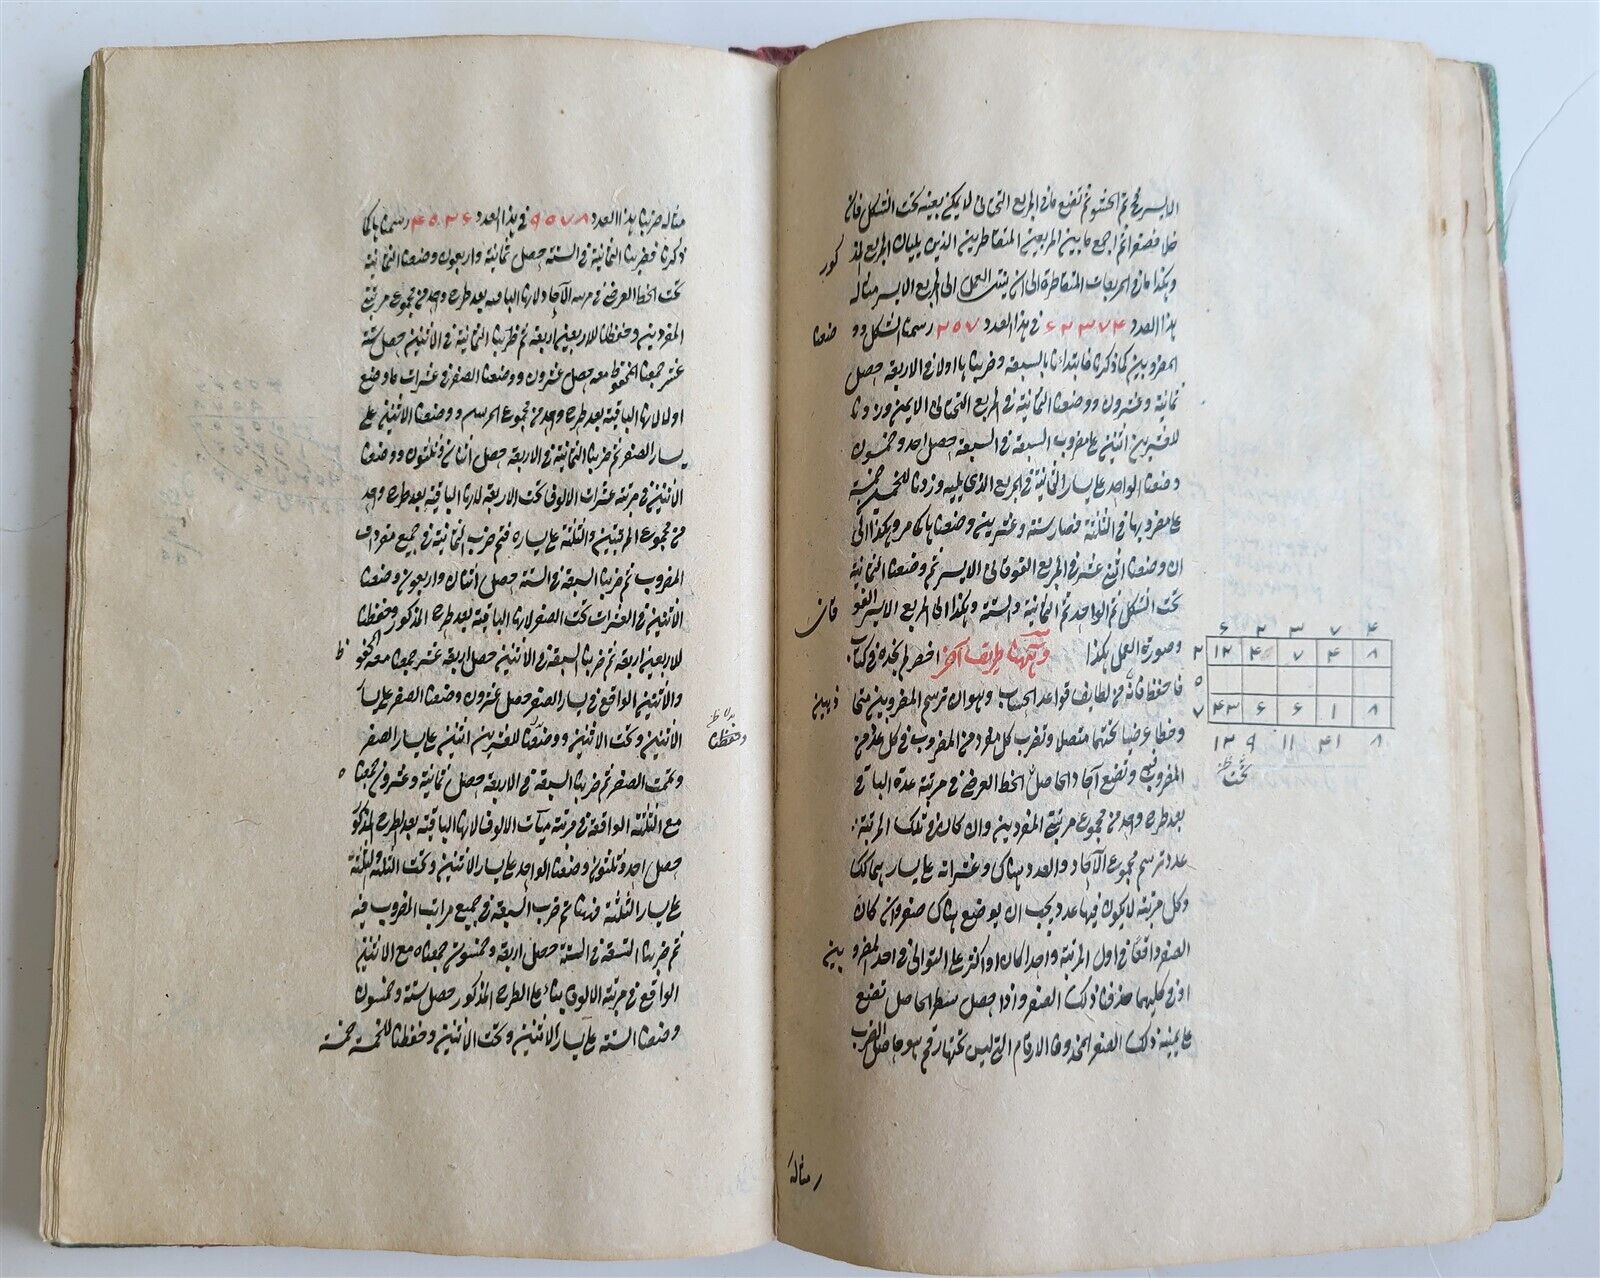 الايسر ثم الحشو ثم تضع ما في المربع التحتاني الايمن بعينه تحت الشكل فان
خلا فصفرا ثم اجمع ما بين المربعين المتقاطرين الذين يليان المربع المذ
كور
وهكذا ما في المربعات المتقاطرة الى ان ينتهى العمل الى المربع الايسر مثاله
هذا العدد ٦٢٣٧٤ في هذا العدد ٢٥٧ رسمنا الشكل وو
ضعنا
المضروبين كما ذكرنا فابتدأنا بالسبعة وضربناها اولا في الاربعة حصل
ثمانية وعشرون ووضعنا الثمانية في المربع التحتاني الايمن وزدنا
للعشرين اثنين على مضروب السبعة في السبعة حصل احد وخمسون
وضعنا الواحد على يسار الثمانية في المربع الذي يليه وزدنا للخمسين خمسة
على مضروبها في الثلثة فصار ستة وعشرين وضعناها كما مر وهكذا الى
ان وضعنا اثنى عشر في المربع الفوقاني الايسر ثم وضعنا الثمانية
تحت الشكل ثم الواحد ثم الثمانية والستة وهكذا الى المربع الايسر الفو
قانى
وصورة العمل هكذا وههنا طريق آخر اخصر لم نجده في كتاب
فاحفظ فانه من لطايف قواعد الحساب وهو ان ترسم المضروبين متحا
ذيين
وخطا عرضيا تحتهما متصل وتضرب كل مفرد من المضروب في كل مفرد من
المضروب فيه وتضع آحاد الحاصل الخط العرضي في مرتبة عدة الباقي
بعد طرح واحد من مجموع مرتبتي المفردين وان كان في تلك المرتبة
عدد ترسم مجموع الآحاد والعدد هناك وعشراته على يسار هنالك
وكل مرتبة لا يكون فيها عدد يجب ان يوضع هناك صفر وان كان
الصفر واقعا في اول المرتبة واحدا كان او اكثر على التوالى في احد المضرو
بين
او في كليهما حذفنا ذلك الصفر واذا حصل سطر الحاصل تضع
على يمينه ذلك الصفر المحذوف الارقام التي ليس تحتها رقم هو حاصل الضرب
٦ ٢ ٣ ٧ ٤
٢ ١٢ ٤ ٧ ٤ ٨
٥
٧ ٤٣ ٦ ٦ ١ ٨
١٢ ٩ ١١ ٤١ ٨
تحت
مثاله
مثاله ضربنا هذا العدد ٩٥٧٨ في هذا العدد ٤٥٢٦ رسمناها كما
ذكرنا فضربنا الثمانية في الستة حصل ثمانية واربعون وضعنا الثمانية
تحت الخط العرضي في مرتبة الآحاد لانها الباقية بعد طرح واحد من مجموع مرتبتي
المفردين وحفظنا للاربعين اربعة ثم ضربنا الثمانية في الاثنين حصل ستة
عشر جمعنا المحفوظ معه حصل عشرون ووضعنا الصفر في عشرات ما وضع
اولا لانها الباقية بعد طرح واحد من مجموع المرسم ووضعنا الاثنين على
يسار الصفر ثم ضربنا الثمانية في الاربعة حصل اثنان وثلثون ووضعنا
الاثنين في مرتبة عشرات الالوف تحت الاربعة لانها الباقية بعد طرح واحد
من مجموع المرتبتين والثلثة على يساره فتم ضرب الثمانية في جميع مفردات
المضروب ثم ضربنا السبعة في الستة حصل اثنان واربعون وضعنا
الاثنين في العشرات تحت الصفر لانها الباقية بعد طرح المذكور وحفظنا
للاربعين اربعة ثم ضربنا السبعة في الاثنين حصل اربعة عشر جمعنا معه المحفو
ظ
والاثنين الواقع في يسار الصفر حصل عشرون وضعنا الصفر على يسا
الاثنين وتحت الاثنين ووضعنا للعشرين اثنين على يسار الصفر
وحفظنا
وتحت الصفر ثم ضربنا السبعة في الاربعة حصل ثمانية وعشرون جمعنا
ه
مع الثلثة الواقعة في مرتبة ميآت الالوف لانها الباقية بعد الطرح المذكور
حصل احد وثلثون وضعنا الواحد على يسار الاثنين وتحت الثلثة والثلثة
على يسار الثلثة فههنا تم ضرب السبعة في جميع مراتب المضروب فيه
ثم ضربنا التسعة في الستة حصل اربعة وخمسون جمعناه مع الاثنين
الواقع في مرتبة الالوف بناء على الطرح المذكور حصل ستة وخمسون
وضعنا الستة على يسار الاثنين وتحت الاثنين وحفظنا للخمسة خمسة